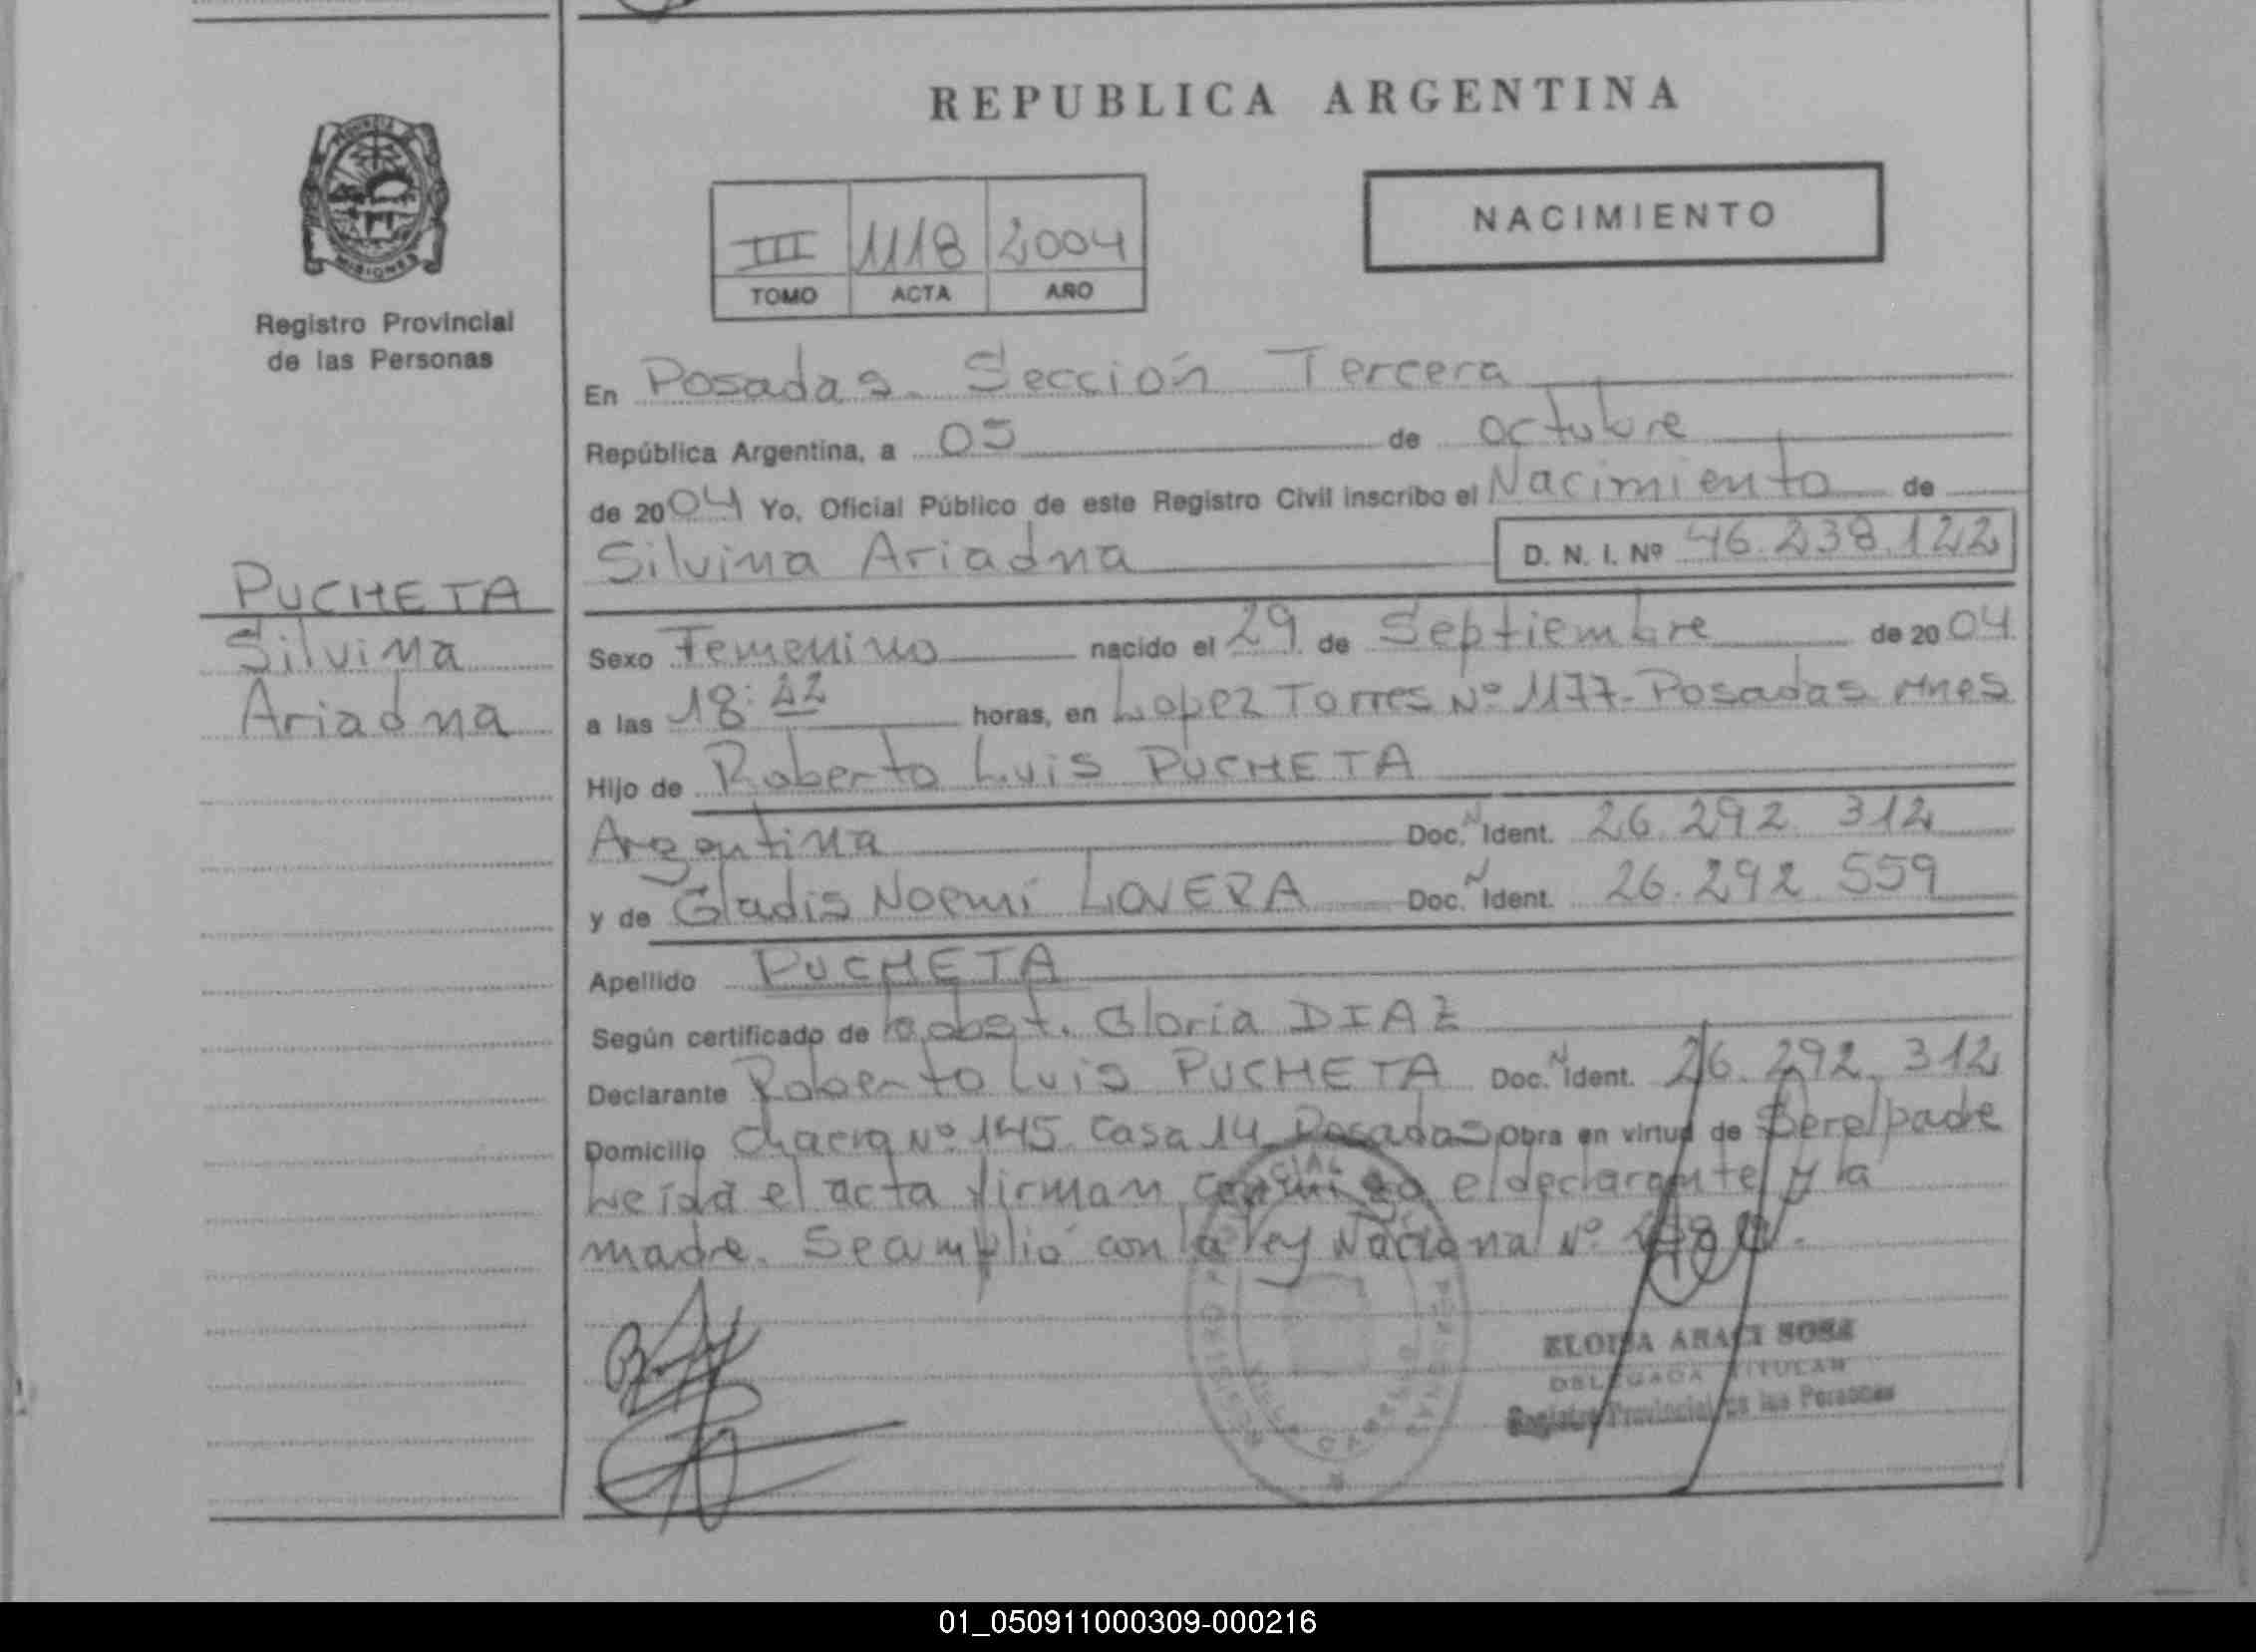 REPUBLICA ARGENTINA
NACIMIENTO
III 1118 2004
TOMO ACTA AÑO
PROVINCIA DE
MISIONES
Registro Provincial
de las Personas
PUCHETA
Silvina
Ariadna
En Posadas. Sección Tercera
República Argentina, a 05 de octubre
de 2004 Yo, Oficial Público de este Registro Civil inscribo el Nacimiento de
Silvina Ariadna D. N. I. Nº 46.238.122
Sexo Femenino nacido el 29 de Septiembre de 2004
a las 18:22 horas, en Lopez Torres Nº 1177-Posadas Mnes
Hijo de Roberto Luis PUCHETA
Argentina Doc. N Ident. 26.292.312
y de Gladis Noemi LOVERA Doc. N Ident. 26.292.559
Apellido PUCHETA
Según certificado de obst. Gloria DIAZ
Declarante Roberto Luis PUCHETA Doc. N Ident. 26.292.312
Domicilio Chacra Nº 145 Casa 14 Posadas obra en virtud de Ser el padre
Leida el acta firman conmigo el declarante y la
madre. Se cumplió con la ley Nacional Nº
ELOISA ARACI SOSA
DELEGADA TITULAR
Registro Provincial de las Personas
01_050911000309-000216